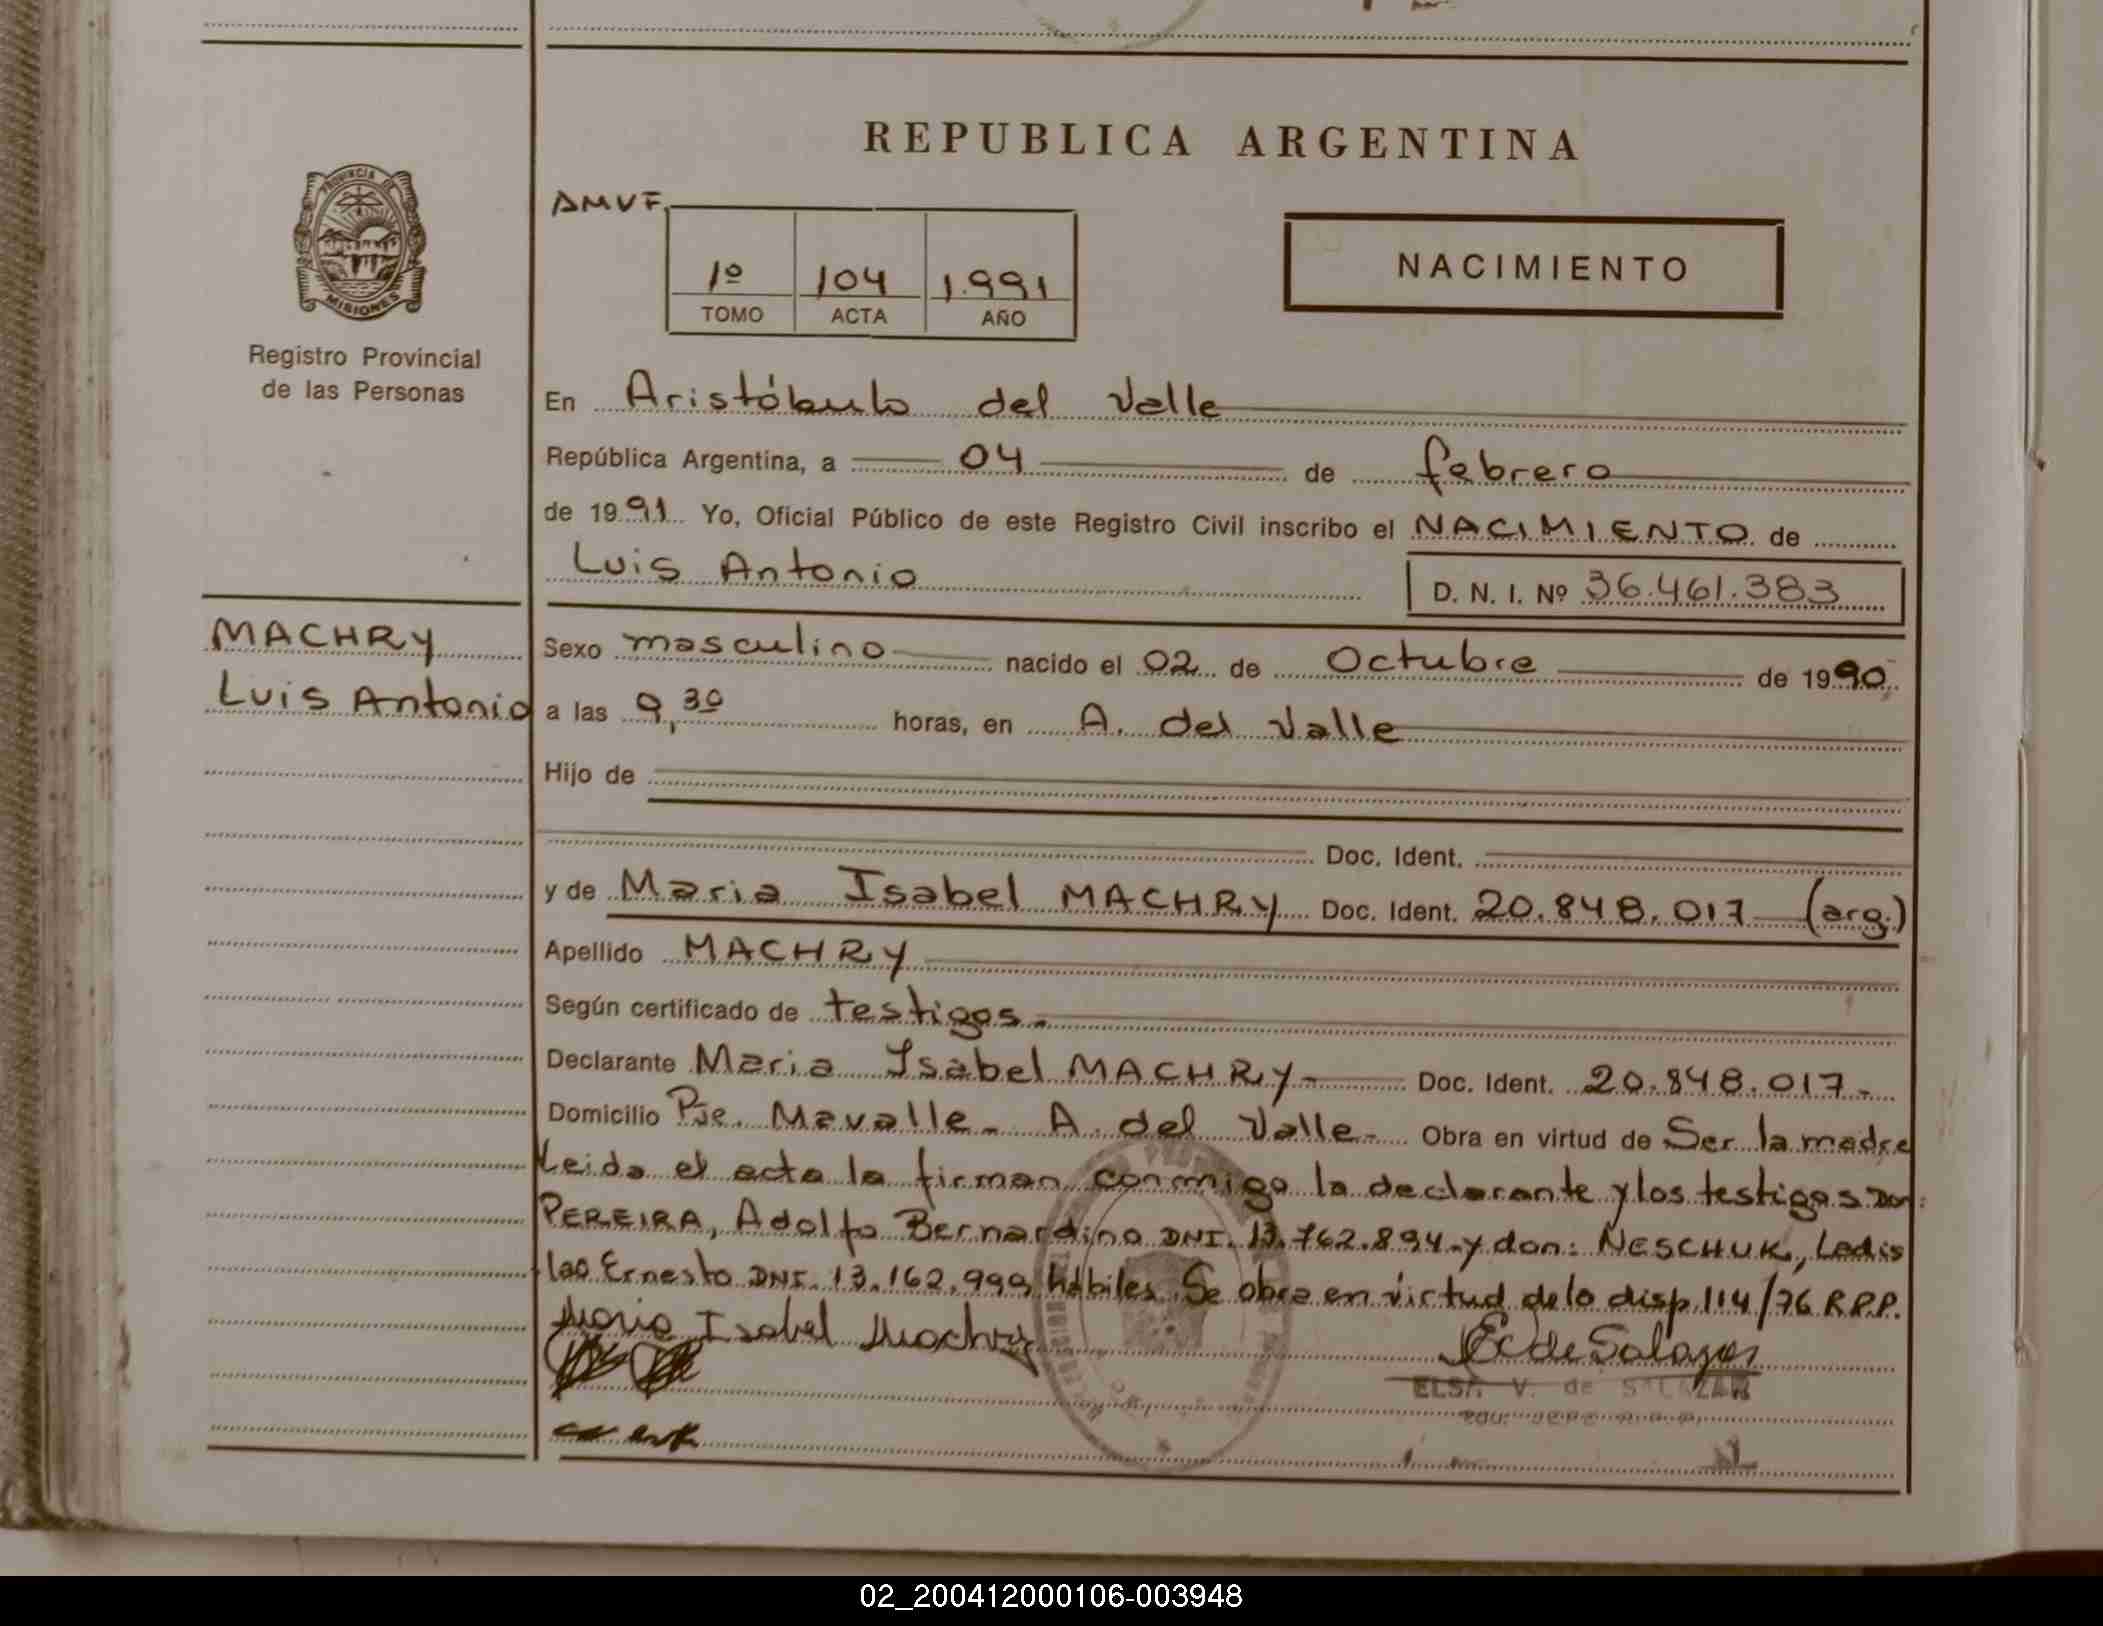 REPUBLICA ARGENTINA
PROVINCIA DE
MISIONES
Registro Provincial
de las Personas
AMVF.
1º 104 1.991
TOMO ACTA AÑO
NACIMIENTO
En Aristóbulo del Valle
República Argentina, a 04 de febrero
de 1991 Yo, Oficial Público de este Registro Civil inscribo el NACIMIENTO de
Luis Antonio
D. N. I. Nº 36.461.383
MACHRY
Luis Antonio
Sexo masculino nacido el 02 de Octubre de 1990
a las 9,30 horas, en A. del Valle
Hijo de
Doc. Ident.
y de Maria Isabel MACHRY Doc. Ident. 20.848.017 (arg.)
Apellido MACHRY
Según certificado de testigos.
Declarante Maria Isabel MACHRY Doc. Ident. 20.848.017.-
Domicilio Pje. Mavalle. A. del Valle Obra en virtud de Ser la madre
Leida el acta la firman conmigo la declarante y los testigos Don:
PEREIRA, Adolfo Bernardino DNI. 13.762.894.y don: NESCHUK, Ladis
lao Ernesto DNI. 13.162.999 hábiles. Se obra en virtud de la disp 114/76 R.P.P.
Maria Isabel Machry
E de Salazar
ELSA V. de SALAZAR
02_200412000106-003948